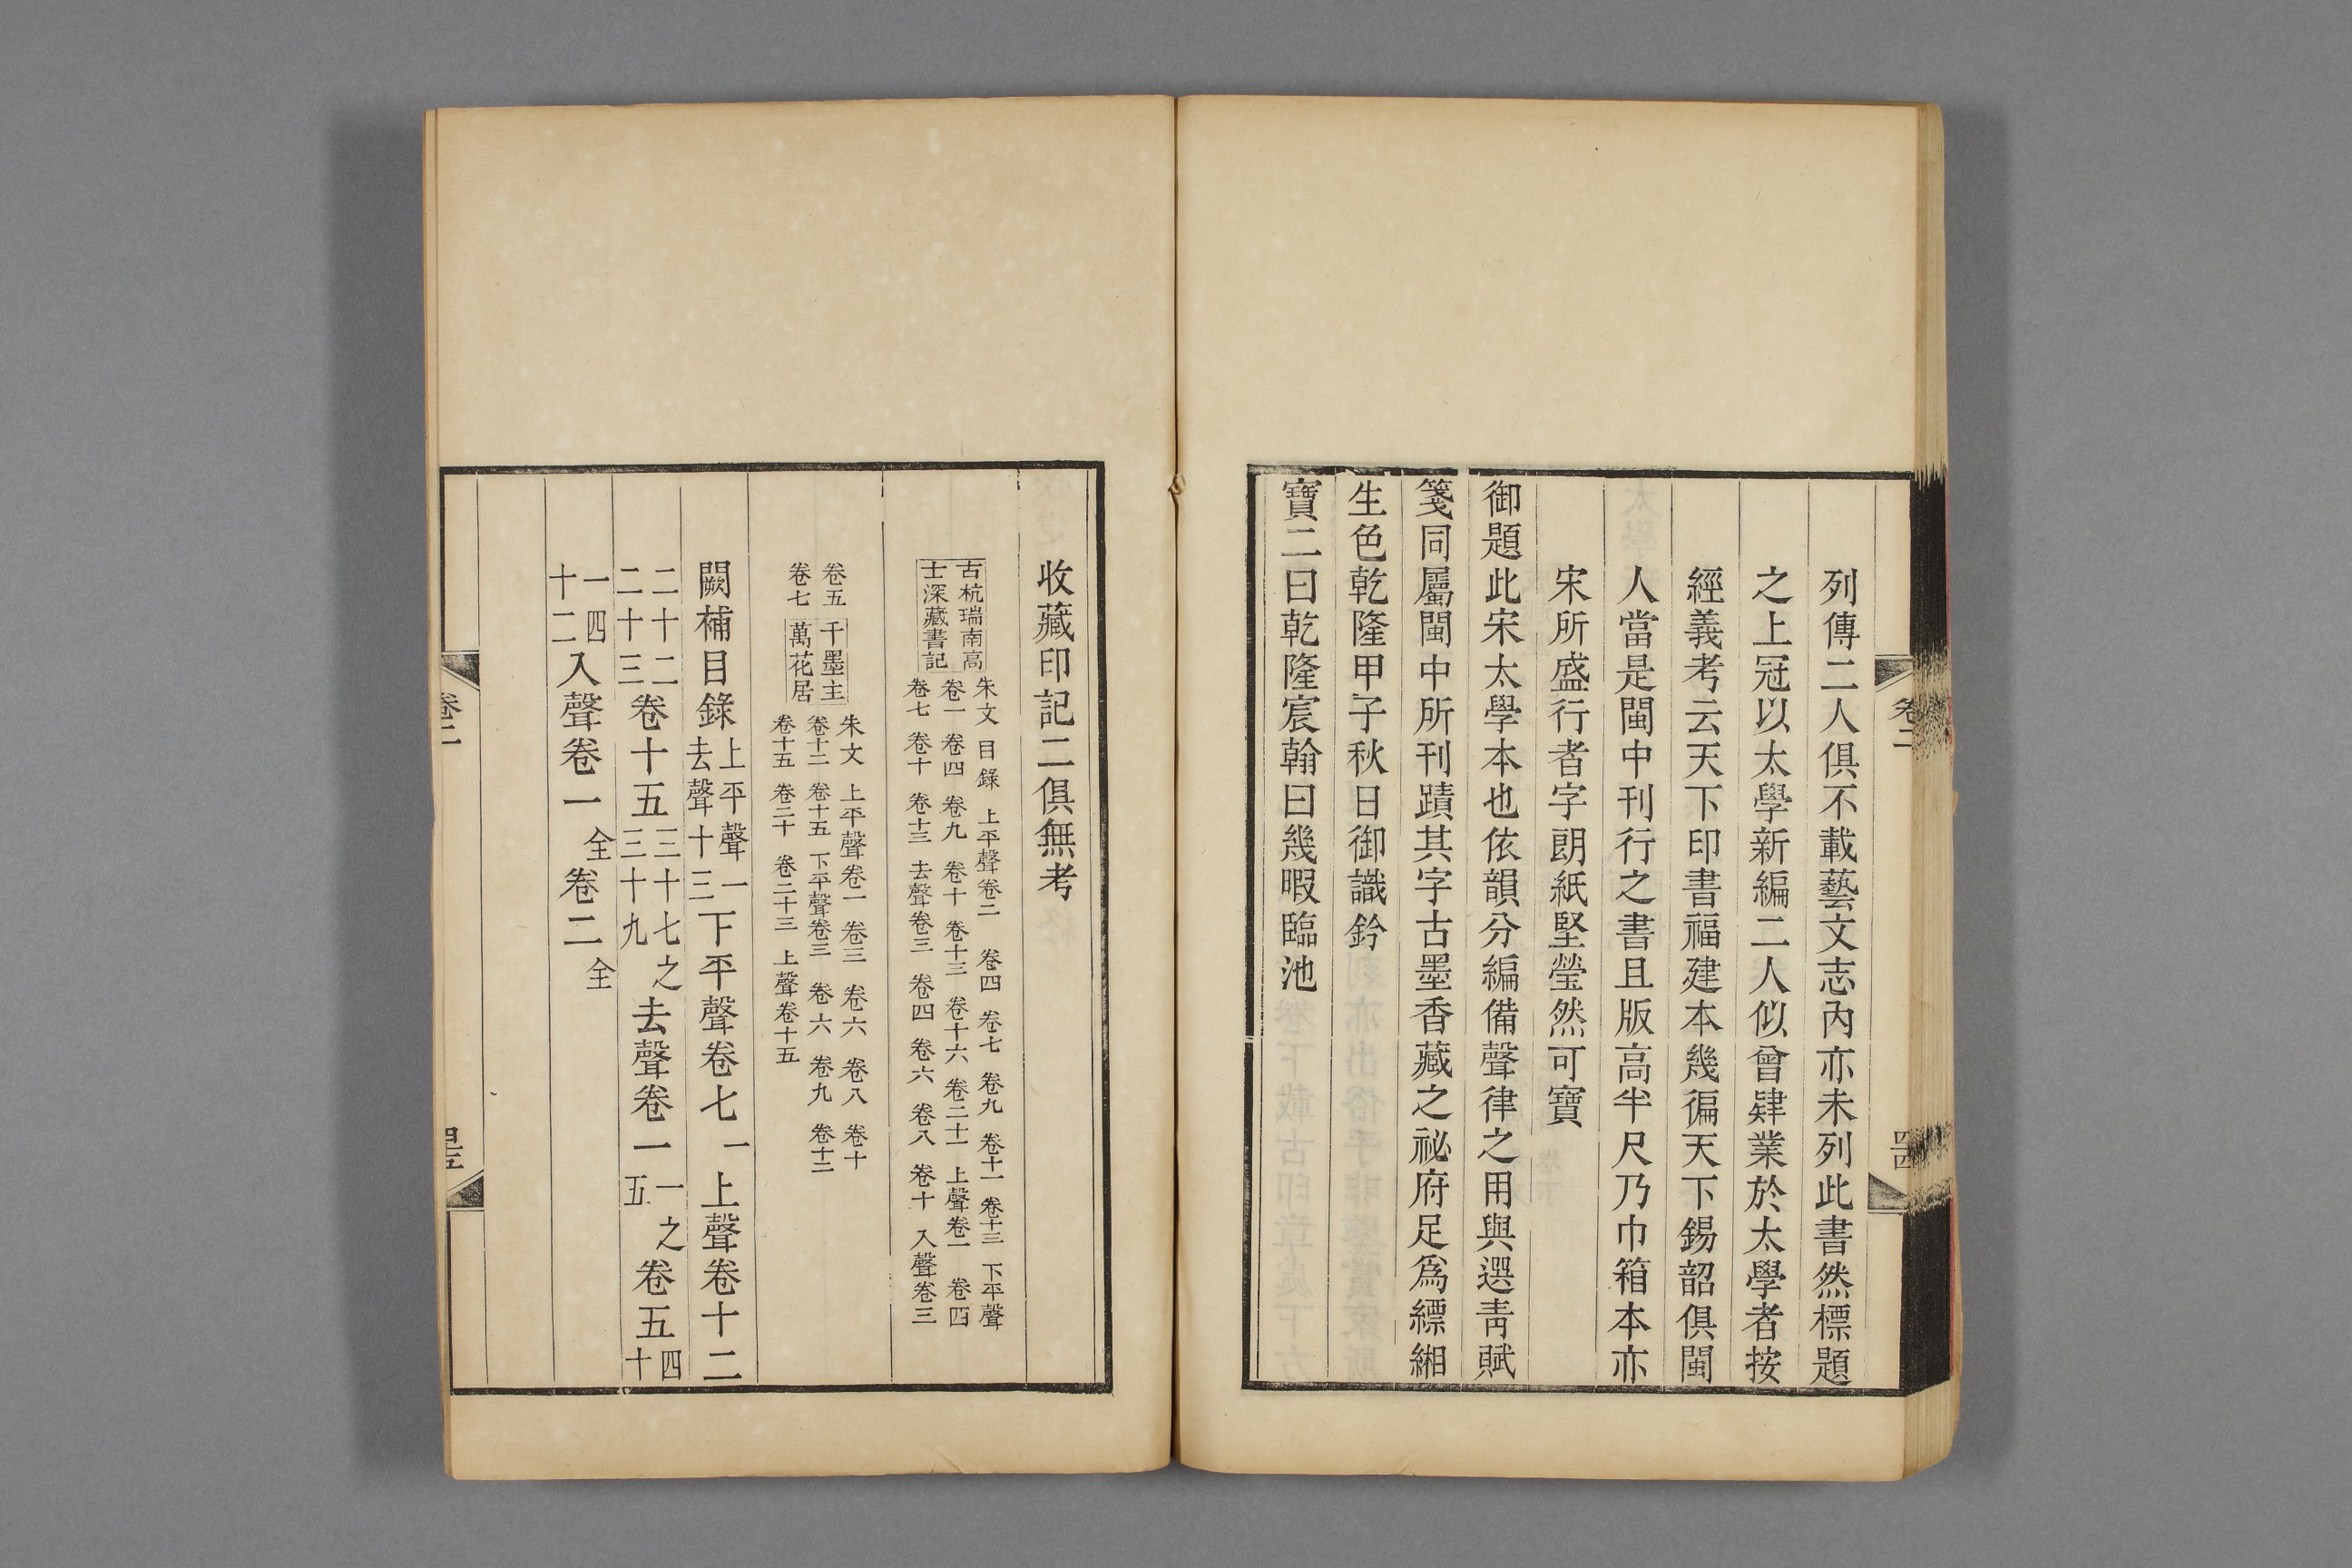 列傳二人俱不載藝文志內亦未列此書然標題
之上冠以太學新編二人似曾肄業於太學者按
經義考云天下印書福建本幾徧天下錫韶俱閩
人當是閩中刊行之書且版高半尺乃巾箱本亦
宋所盛行者字朗紙堅瑩然可寶
御題此宋太學本也依韻分編備聲律之用與選青賦
箋同屬閩中所刊蹟其字古墨香藏之祕府足爲縹緗
生色乾隆甲子秋日御識鈐
寶二曰乾隆宸翰曰幾暇臨池
收藏印記二俱無考
古杭瑞南高
士深藏書記
朱文 目錄 上平聲卷二 卷四 卷七 卷九 卷十一 卷十三 下平聲
卷一 卷四 卷九 卷十 卷十三 卷十六 卷二十一 上聲卷一 卷四
卷七 卷十 卷十三 去聲卷三 卷四 卷六 卷八 卷十 入聲卷三
卷五
卷七
千墨主
萬花居
朱文 上平聲卷一 卷三 卷六 卷八 卷十
卷十二 卷十五 下平聲卷三 卷六 卷九 卷十二
卷十五 卷二十 卷二十三 上聲卷十五
闕補目錄
上平聲一
去聲十三
下平聲卷七一上聲卷十二
二十二
二十三
卷十五
三十七之
三十九
去聲卷一
一之
五
卷五
四
十
一四
十二
入聲卷一全卷二全
卷二